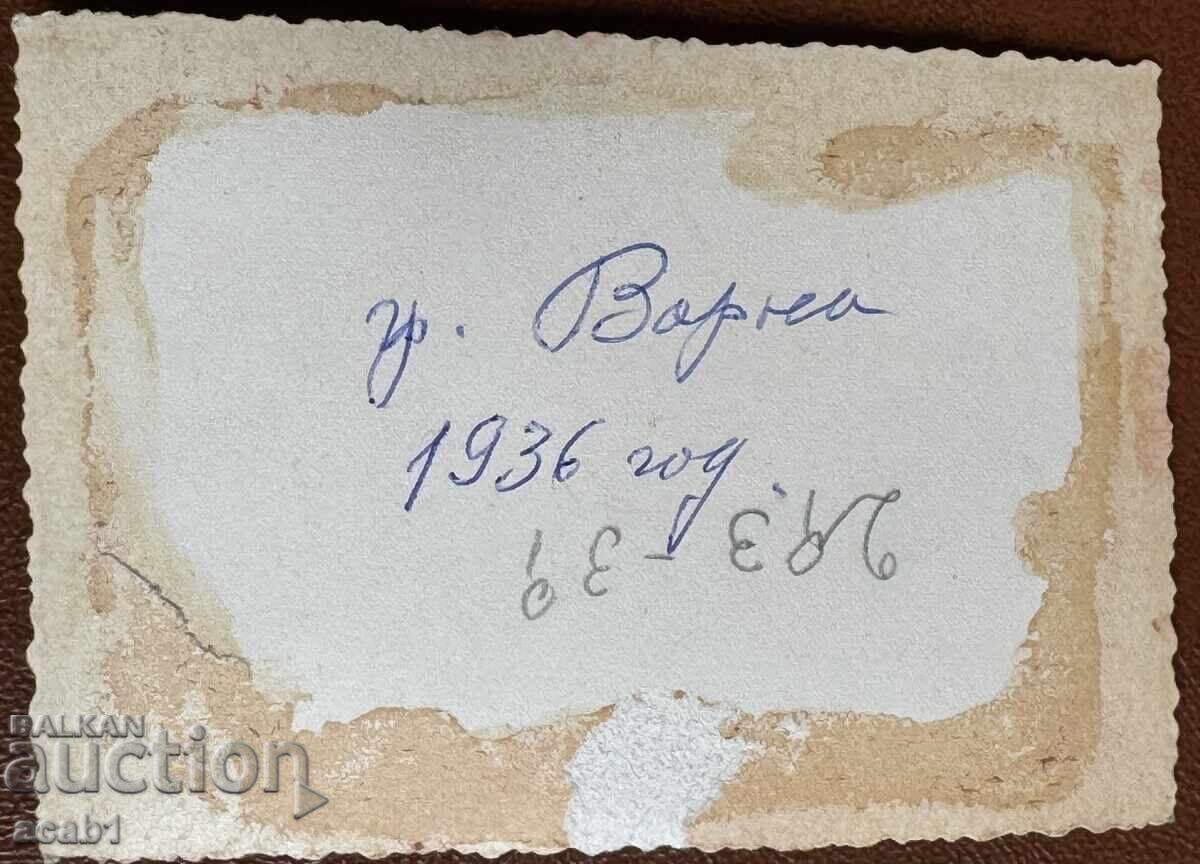 гр. Варна
1936 год.
BALKAN
auction
acab1